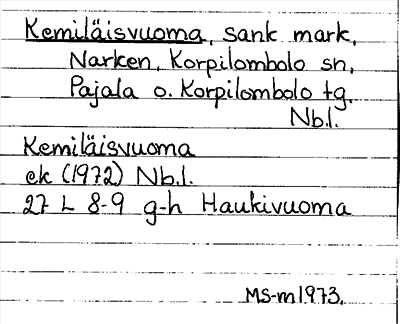 Kemiläisvuoma, sank mark,
Narken, Korpilombolo sn,
Pajala o. Korpilombolo tg.
Nb.l.
Kemiläisvuoma
ek (1972) Nb.l.
27 L 8-9 g-h Haukivuoma
MS-m1973.